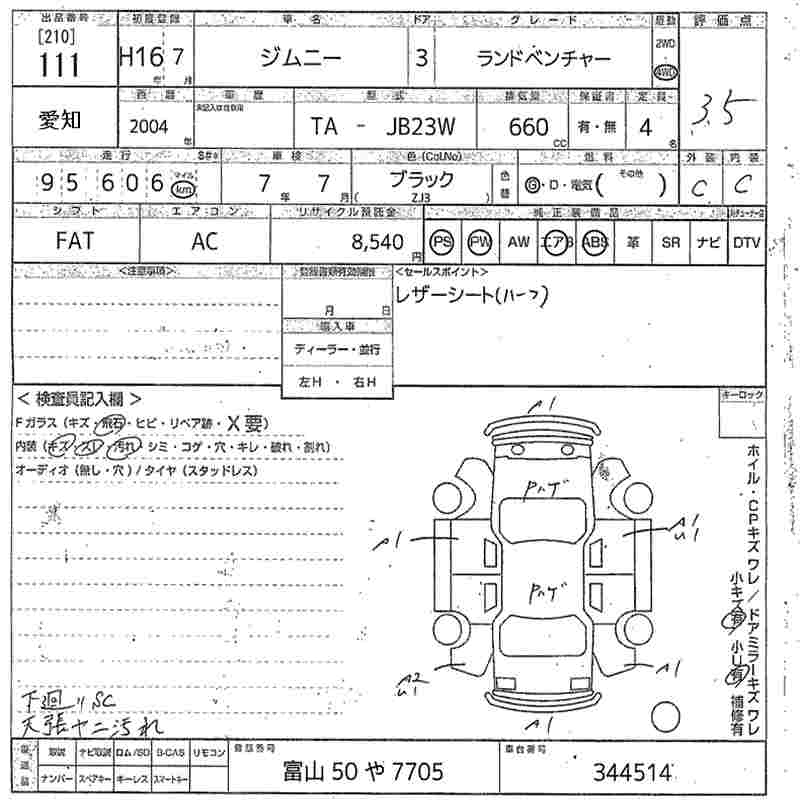 出品番号 初度登録 車名 ドア グレード 駆動 評価点
[210] 111 H16年 7月 ジムニー 3 ランドベンチャー 2WD 4WD 3.5
愛知 西暦 2004年 車歴 型式 TA - JB23W 排気量 660cc 保証書 有・無 定員 4名
走行 95606 マイル km 車検 7年 7月 色(Col.No) ブラック (ZJ3) 色替 燃料 G・D・電気( その他 ) 外装 C 内装 C
シフト エアコン リサイクル預託金 純正装備品
FAT AC 8,540円 PS PW AW エアB ABS 革 SR ナビ DTV
<注意事項> <セールスポイント>
月 日 レザーシート(ハーフ)
輸入車
ディーラー・並行
左H ・ 右H
< 検査員記入欄 > キーロック
Fガラス (キズ・飛石・ヒビ・リペア跡・X要)
内装 (キズ・スレ・汚れ・シミ・コゲ・穴・キレ・破れ・割れ)
オーディオ (無し・穴) / タイヤ (スタッドレス)
A1
Pハゲ
A1 A1 U1
Pハゲ
A2 U1 A1
A1
ホイル・CPキズ ワレ / ドアミラーキズ ワレ
小キズ有 小U有 補修有
下廻りSC
天張ヤニ汚れ
取説 ナビ取説 ロム/SD B-CAS リモコン 登録番号 車台番号
ナンバー スペアキー キーレス スマートキー 富山 50 や 7705 344514